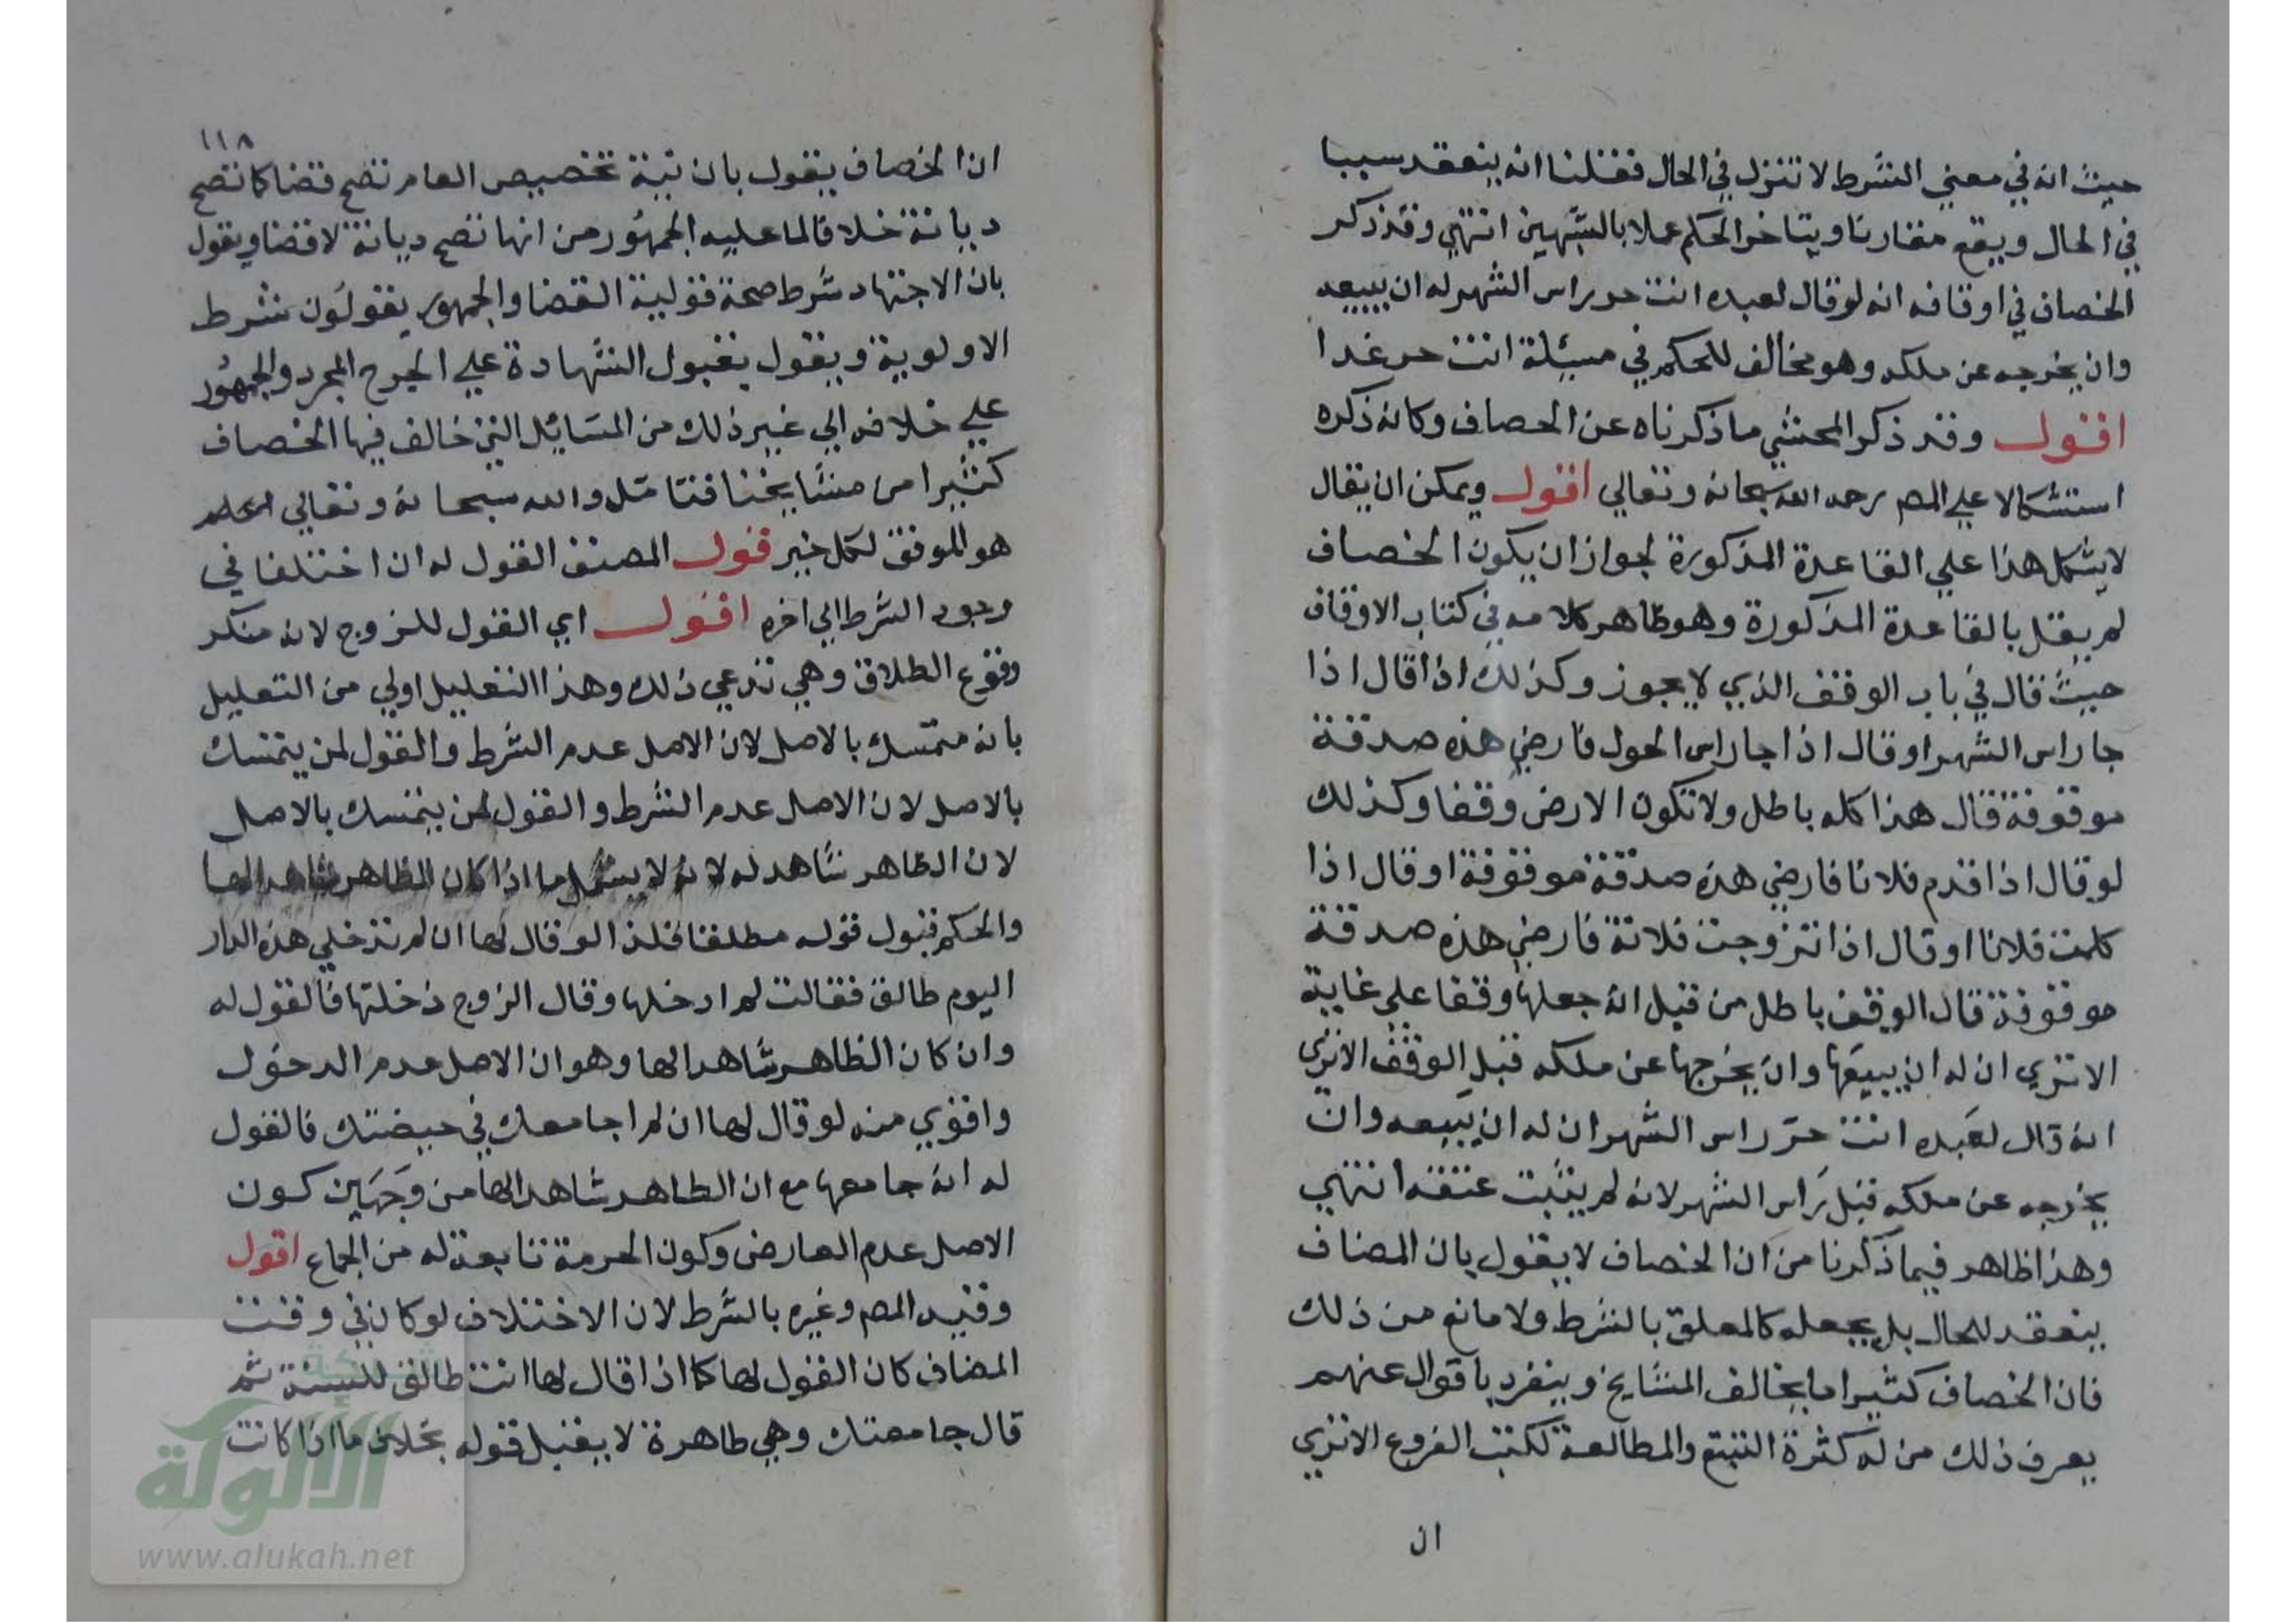 حيث انه في معني الشرط لا تنزل في الحال فقلنا انه ينعقد سببا
في الحال ويقع مقارنا ويتاخر الحكم عملا بالشبهين انتهي وقد ذكر
الخصاف في اوقافه انه لو قال لعبده انت حر راس الشهر له ان يبيعه
وان يخرجه عن ملكه وهو مخالف للحكم في مسئلة انت حر غدا
اقول وقد ذكر المحشي ما ذكرناه عن الخصاف وكانه ذكره
استشكالا علي المص رحمه الله سبحانه وتعالي اقول ويمكن ان يقال
لا يشكل هذا علي القاعدة المذكورة لجواز ان يكون الخصاف
لم يقل بالقاعدة المذكورة وهو ظاهر كلامه في كتاب الاوقاف
حيث قال في باب الوقف الذي لا يجوز وكذلك اذا قال اذا
جا راس الشهر او قال اذا جا راس الحول فارضي هذه صدقة
موقوفة قال هذا كله باطل ولا تكون الارض وقفا وكذلك
لو قال اذا قدم فلانا فارضي هذه صدقة موقوفة او قال اذا
كلمت فلانا او قال اذا تزوجت فلانة فارضي هذه صدقة
موقوفة قال الوقف باطل من قبل انه جعلها وقفا علي غاية
الا تري ان له ان يبيعها وان يخرجها عن ملكه قبل الوقف الا تري
انه قال لعبده انت حر راس الشهر ان له ان يبيعه وان
يخرجه عن ملكه قبل راس الشهر لانه لم يثبت عتقه انتهي
وهذا ظاهر فيما ذكرنا من ان الخصاف لا يقول بان المضاف
ينعقد للحال بل يجعله كالمعلق بالشرط ولا مانع من ذلك
فان الخصاف كثيرا ما يخالف المشايخ وينفرد باقوال عنهم
يعرف ذلك من له كثرة التتبع والمطالعة لكتب الفروع الا تري
ان
١١٨
ان الخصاف يقول بان نية تخصيص العام تصح قضا كما تصح
ديانة خلافا لما عليه الجمهور من انها تصح ديانة لا قضا ويقول
بان الاجتهاد شرط صحة تولية القضا والجمهور يقولون شرط
الاولوية ويقول بقبول الشهادة علي الجرح المجرد والجمهور
علي خلافه الي غير ذلك من المسائل التي خالف فيها الخصاف
كثيرا من مشايخنا فتامل والله سبحانه وتعالي اعلم
هو الموفق لكل خير قول المصنف القول له ان اختلفا في
وجود الشرط الي اخره اقول اي القول للزوج لانه منكر
وقوع الطلاق وهي تدعي ذلك وهذا التعليل اولي من التعليل
بانه متمسك بالاصل لان الاصل عدم الشرط والقول لمن يتمسك
بالاصل لان الاصل عدم الشرط والقول لمن يتمسك بالاصل
لان الظاهر شاهد له لانه لا يشمل ما اذا كان الظاهر شاهدا لها
والحكم قبول قوله مطلقا فلذا لو قال لها ان لم تدخلي هذه الدار
اليوم طالق فقالت لم ادخلها وقال الزوج دخلتها فالقول له
وان كان الظاهر شاهدا لها وهو ان الاصل عدم الدخول
واقوي منه لو قال لها ان لم اجامعك في حيضتك فالقول
له انه جامعها مع ان الظاهر شاهد لها من وجهين كون
الاصل عدم العارض وكون الحرمة تابعة له من الجماع اقول
وقيد المص وغيره بالشرط لان الاختلاف لو كان في وقت
المضاف كان القول لها كما اذا قال لها انت طالق للسنة ثم
قال جامعتك وهي طاهرة لا يقبل قوله بخلاف ما اذا كانت
شبكة
الألوكة
www.alukah.net